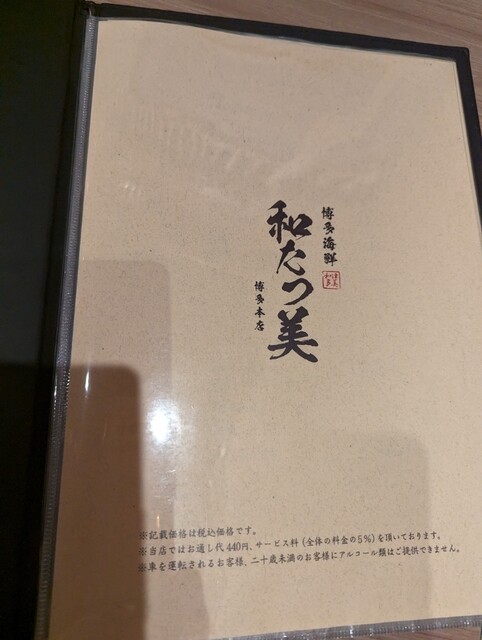 博多海鮮
和たつ美
博多本店
※記載価格は税込価格です。
※当店ではお通し代440円、サービス料(全体の料金の5%)を頂いております。
※車を運転されるお客様、二十歳未満のお客様にアルコール類はご提供できません。